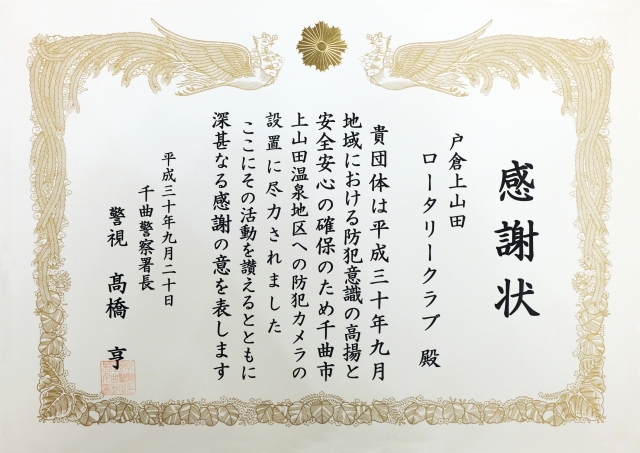 感謝状
戸倉上山田
ロータリークラブ 殿
貴団体は平成三十年九月
地域における防犯意識の高揚と
安全安心の確保のため千曲市
上山田温泉地区への防犯カメラの
設置に尽力されました
ここにその活動を讃えるとともに
深甚なる感謝の意を表します
平成三十年九月二十日
千曲警察署長
警視 髙橋 亨